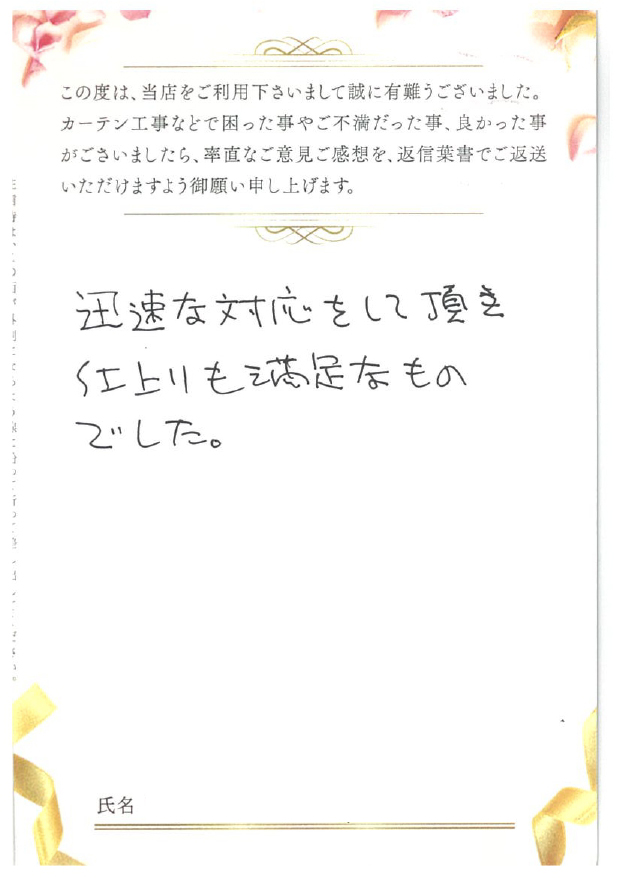 この度は、当店をご利用下さいまして誠に有難うございました。
カーテン工事などで困った事やご不満だった事、良かった事
がございましたら、率直なご意見ご感想を、返信葉書でご返送
いただけますよう御願い申し上げます。
迅速な対応をして頂き
仕上りも満足なもの
でした。
氏名